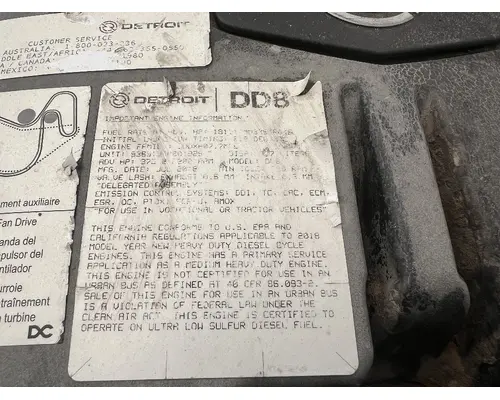 DETROIT
CUSTOMER SERVICE
AUSTRALIA: 1-800-
MIDDLE EAST/AFRICA
/ CANADA:
MEXICO:
DETROIT DD8
IMPORTANT ENGINE INFORMATION
FUEL RATE AT ADV. HP:
INITIAL INJECTION TIMING:
ENGINE FAMILY:
UNIT:
ADV HP: MODEL: DD8
MFG. DATE: JUL 2018
VALVE LASH: EXHAUST 0.6 MM INTAKE 0.3 MM
"DELEGATED ASSEMBLY"
EMISSION CONTROL SYSTEMS: DDI, TC, CAC, ECM,
EGR, OC, AMOX
"FOR USE IN VOCATIONAL OR TRACTOR VEHICLES"
THIS ENGINE CONFORMS TO U.S. EPA AND
CALIFORNIA REGULATIONS APPLICABLE TO 2018
MODEL YEAR NEW HEAVY DUTY DIESEL CYCLE
ENGINES. THIS ENGINE HAS A PRIMARY SERVICE
APPLICATION AS A MEDIUM HEAVY DUTY ENGINE.
THIS ENGINE IS NOT CERTIFIED FOR USE IN AN
URBAN BUS AS DEFINED AT 40 CFR 86.093-2.
SALE OF THIS ENGINE FOR USE IN AN URBAN BUS
IS A VIOLATION OF FEDERAL LAW UNDER THE
CLEAN AIR ACT. THIS ENGINE IS CERTIFIED TO
OPERATE ON ULTRA LOW SULFUR DIESEL FUEL.
ment auxiliaire
Fan Drive
nda del
pulsor del
ntilador
urroie
ntraînement
turbine
DC